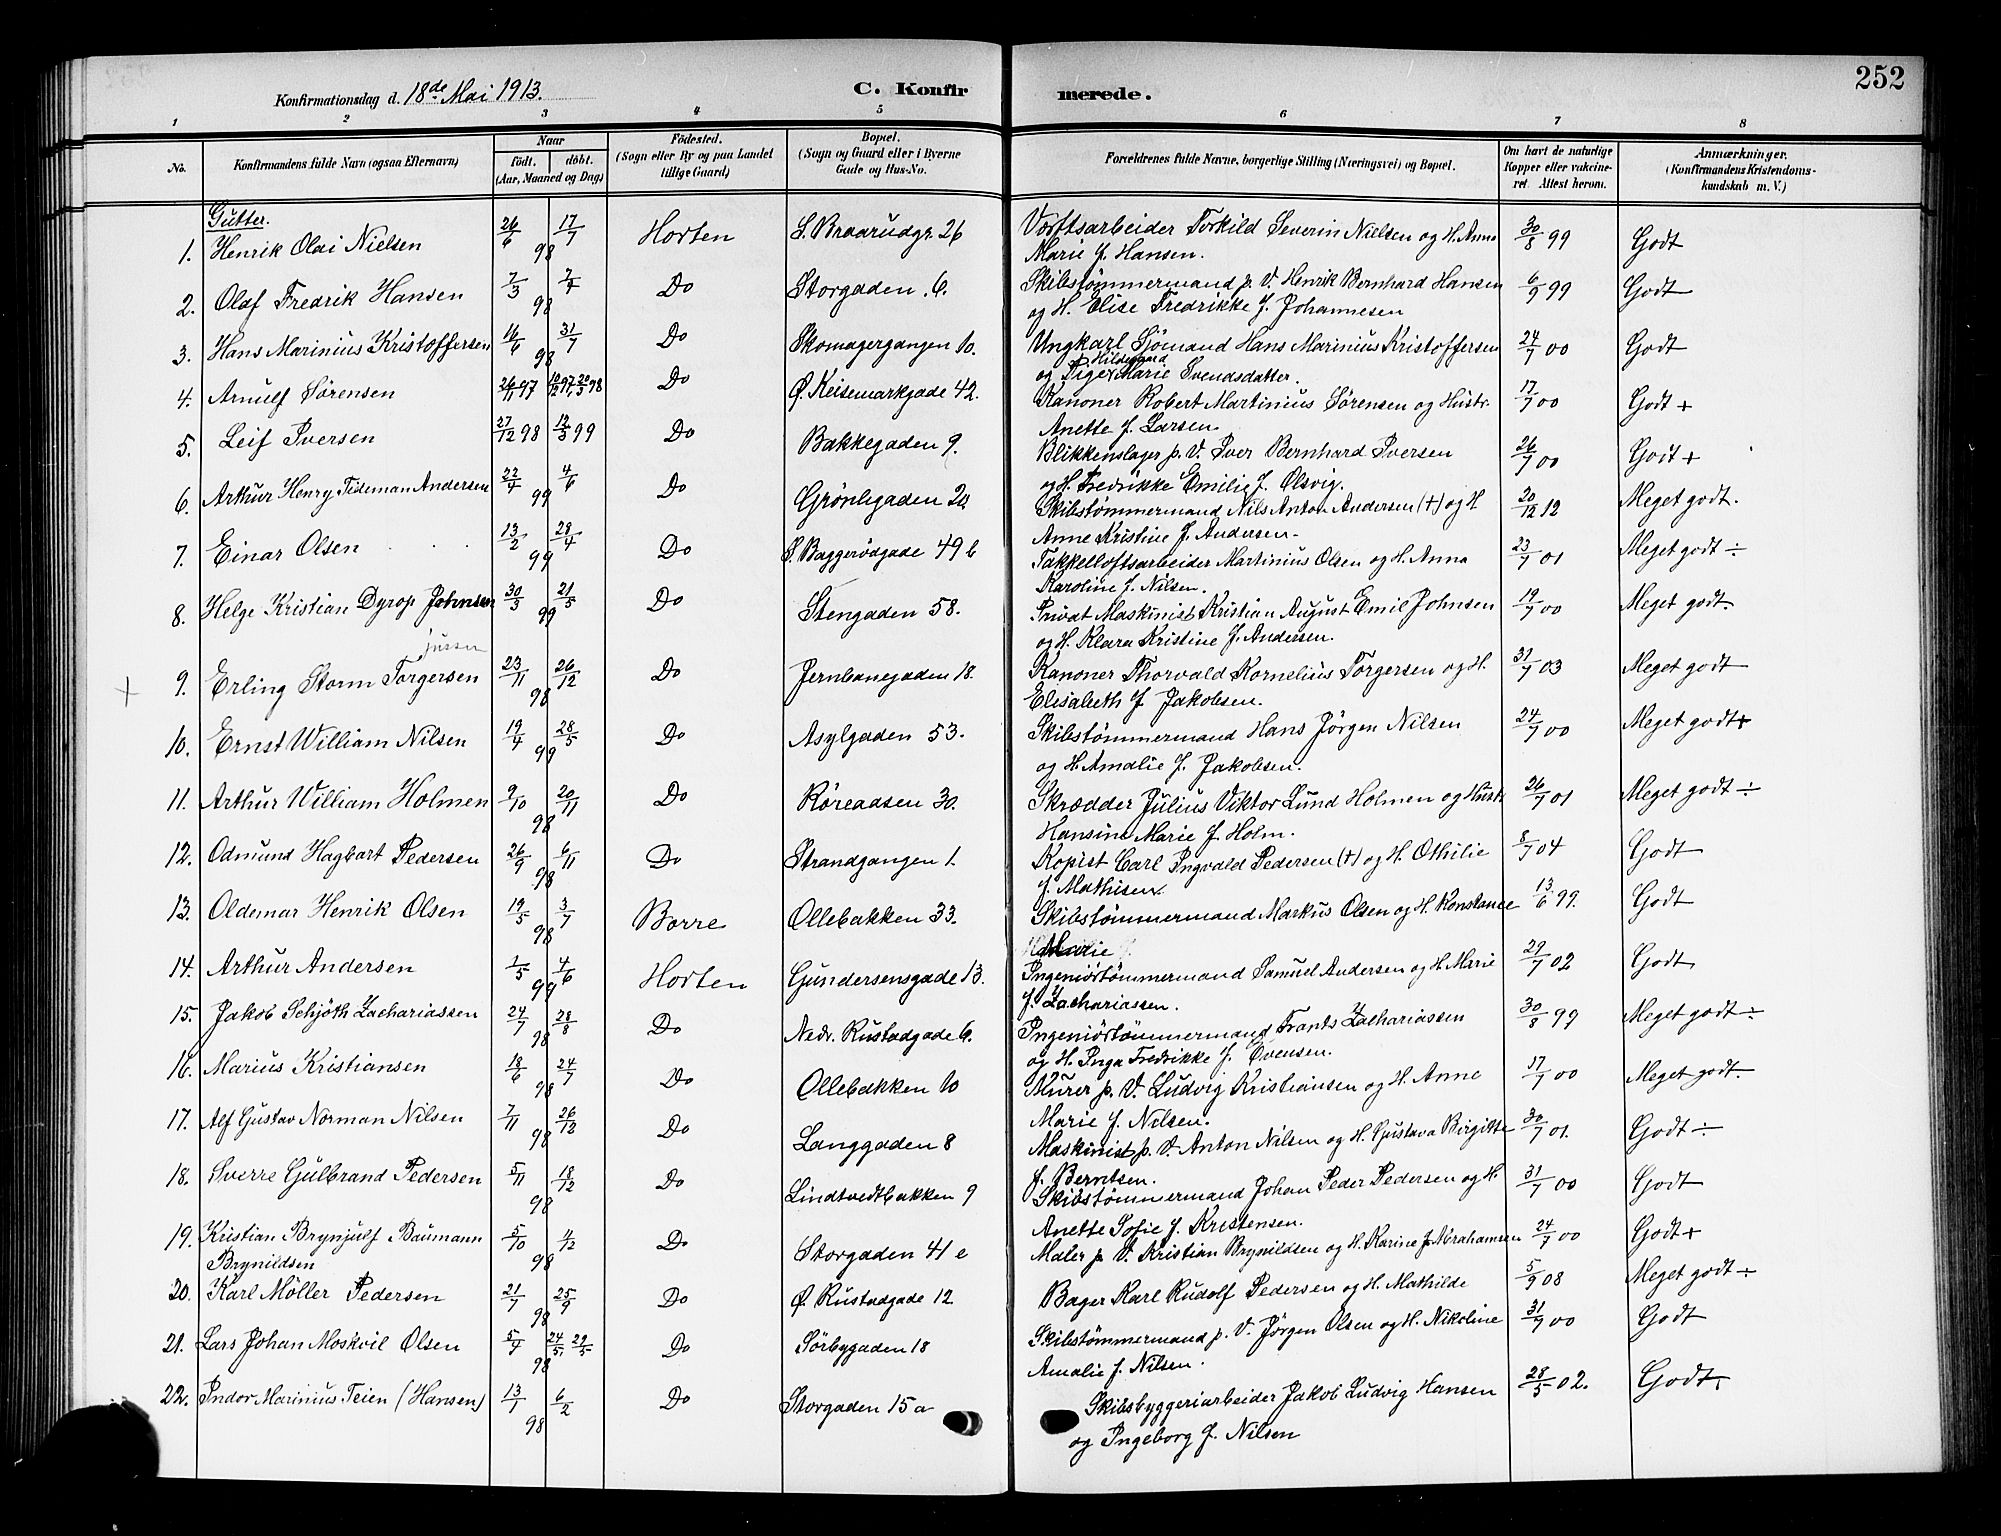 252
Konfirmationsdag d. 18de Mai 1913.
C. Konfirmerede.
1 2 3 4 5 6 7 8
No. Konfirmandens fulde Navn (ogsaa Efternavn) Naar födt. döbt. (Aar, Maaned og Dag) Födested. (Sogn eller By og paa Landet tillige Gaard) Bopæl. (Sogn og Gaard eller i Byerne Gade og Hus-No. Forældrenes fulde Navne, borgerlige Stilling (Næringsvei) og Bopæl. Om havt de naturlige Kopper eller vakcineret Attest herom. Anmærkninger. (Konfirmandens Kristendomskundskab m. V.)
Gutter.
1. Henrik Olai Nielsen 26/6 98 17/7 Horten S. Braarudgr. 26 Værftsarbeider Torkild Severin Nielsen og H. Anna
Marie f. Hansen. 30/8 99 Godt
2. Olaf Fredrik Hansen 7/3 98 7/4 Do Storgaden 6. Skibstømmermand p. V. Henrik Bernhard Hansen
og H. Elise Fredrikke f. Johannesen 6/9 99 Godt
3. Hans Marinius Kristoffersen 16/6 98 31/7 Do Skomagergangen 10. Ungkarl Sjömand Hans Marinius Kristoffersen
og Pige Hildegaard Marie Svendsdatter. 24/7 00 Godt
4. Arnulf Sørensen 26/11 97 10/12 97, 20/3 98 Do Ø. Keisemarkgade 42. Kanoner Robert Martinius Sørensen og Hustr.
Anette f. Larsen. 17/7 00 Godt +
5. Leif Iversen 27/12 98 12/3 99 Do Bakkegaden 9. Blikkenslager p. V. Iver Bernhard Iversen
og H. Fredrikke Emilie f. Olsvig. 26/7 00 Godt +
6. Arthur Henry Tideman Andersen 22/4 99 4/6 Do Grönligaden 20 Skibstømmermand Nils Anton Andersen (†) og H
Anne Kristine f. Andersen. 20/12 12 Meget godt.
7. Einar Olsen 13/2 99 28/4 Do S. Baggerödgade 49 b Takkelloftsarbeider Martinius Olsen og H. Anna
Karoline f. Nilsen. 23/7 01 Meget godt ÷
8. Helge Kristian Dyrop Johnsen 30/3 99 21/5 Do Stengaden 58. Privat Maskinist Kristian August Emil Johnsen
og H. Klara Kristine f. Andersen. 19/7 00 Meget godt.
9. Erling Storm Torgersen 23/11 98 26/12 Do Jernbanegaden 18. Kanoner Thorvald Kornelius Torgersen og H.
Elisabeth f. Jakobsen. 31/7 03 Meget godt
10. Ernst William Nilsen 19/4 99 28/5 Do Asylgaden 53. Skibstømmermand Hans Jörgen Nilsen
og H. Amalie f. Jakobsen. 24/7 00 Meget godt +
11. Arthur William Holmen 9/10 98 20/11 Do Röreaasen 30. Skrædder Julius Viktor Lund Holmen og Hustr
Hansine Marie f. Holm. 26/7 01 Meget godt ÷
12. Odmund Hagbart Pedersen 26/9 98 6/11 Do Strandgangen 1. Kopist Carl Ingvald Pedersen (†) og H. Othilie
f. Mathisen. 8/7 04 Godt
13. Oldemar Henrik Olsen 19/5 98 3/7 Borre Ollebakken 33. Skibstømmermand Markus Olsen og H. Konstance
Marie 13/6 99. Godt
14. Arthur Andersen 1/5 99 4/6 Horten Gundersensgade 13. Ingeniörtömmermand Samuel Andersen og H. Marie
f. Zachariassen. 29/7 02 Godt
15. Jakob Schjöth Zachariassen 24/7 98 28/8 Do Nedr. Rustadgade 6. Ingeniörtömmermand Frants Zachariassen
og H. Inga Fredrikke f. Evensen. 30/8 99 Meget godt ÷
16. Marius Kristiansen 18/6 98 24/7 Do Ollebakken 10 Murer p. V. Ludvig Kristiansen og H. Anne
Marie f. Nilsen. 17/7 00 Meget godt.
17. Alf Gustav Norman Nilsen 7/11 98 26/12 Do Langgaden 8 Maskinist p. V. Anton Nilsen og H. Gustava Birgitte
f. Berntsen. 30/7 01. Godt ÷
18. Sverre Gulbrand Pedersen 5/11 98 18/12 Do Lindtvedtbakken 9 Skibstömmermand Johan Peder Pedersen og H.
Anette Sofie f. Kristensen. 31/7 00 Godt
19. Kristian Brynjulf Baumann
Brynildsen 5/10 98 4/12 Do Storgaden 41 e Maler p. V. Kristian Brynildsen og H. Karine f. Abrahamsen 24/7 00 Godt +
20. Karl Möller Pedersen 21/7 98 25/9 Do Ø. Rustadgade 12 Bager Karl Rudolf Pedersen og H. Mathilde 5/9 08 Meget godt ÷
21. Lars Johan Moskvil Olsen 5/4 98 24/5, 29/5 Do Sörbygaden 18 Skibstömmermand p. V. Jörgen Olsen og H. Nikoline
Amalie f. Nilsen. 31/7 00 Godt
22. Indor Marinius Teien (Hansen) 13/1 98 6/2 Do Storgaden 15 a Skibsbyggeriarbeider Jakob Ludvig Hansen
og Ingeborg f. Nilsen 28/5 02. Godt.